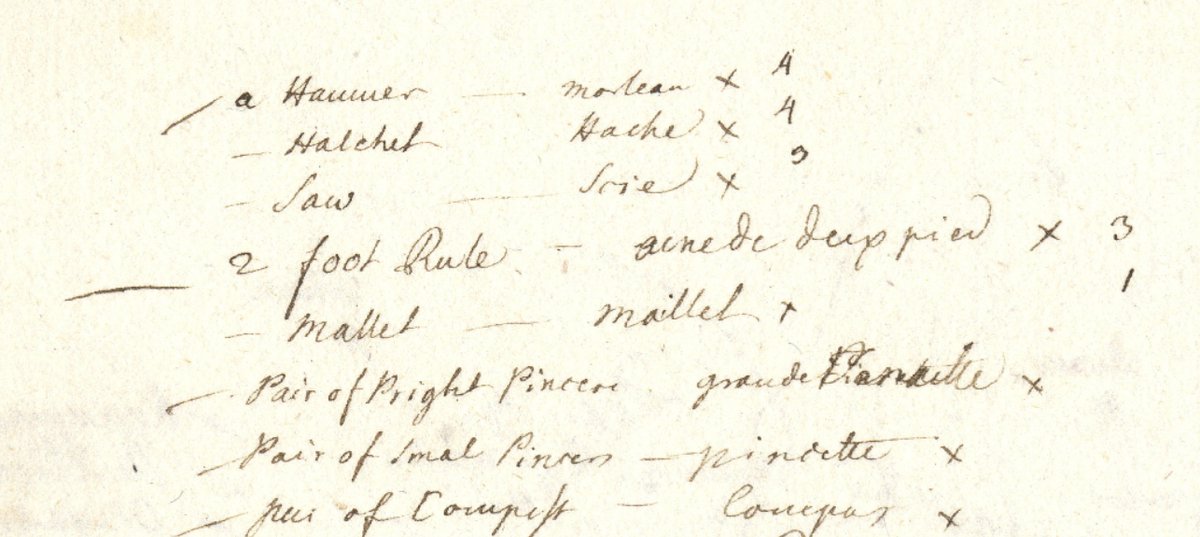 a Hammer — morteau × 4
— Hatchet Hache × 4
— Saw — Scie × 3
2 foot Rule — de deux pied × 3
— Mallet — maillet × 1
— Pair of Pright Pincers grande ×
— Pair of Smal Pincers — pincette ×
— of Compass — Compas ×